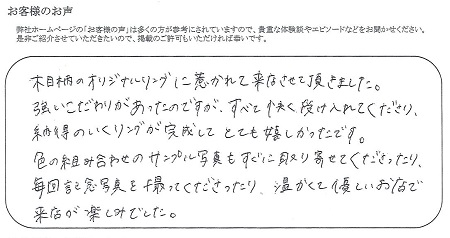 お客様のお声
弊社ホームページの「お客様の声」は多くの方が参考にされていますので、貴重な体験談やエピソードなどをお聞かせください。
是非ご紹介させていただきたいので、掲載のご許可もいただければ幸いです。
木目柄のオリジナルリングに惹かれて来店させて頂きました。
強いこだわりがあったのですが、すべて快く受け入れてくださり、
納得のいくリングが完成してとても嬉しかったです。
色の組み合わせのサンプル写真もすぐに取り寄せてくださったり、
毎回記念写真を撮ってくださったり、温かくて優しいお店で
来店が楽しみでした。